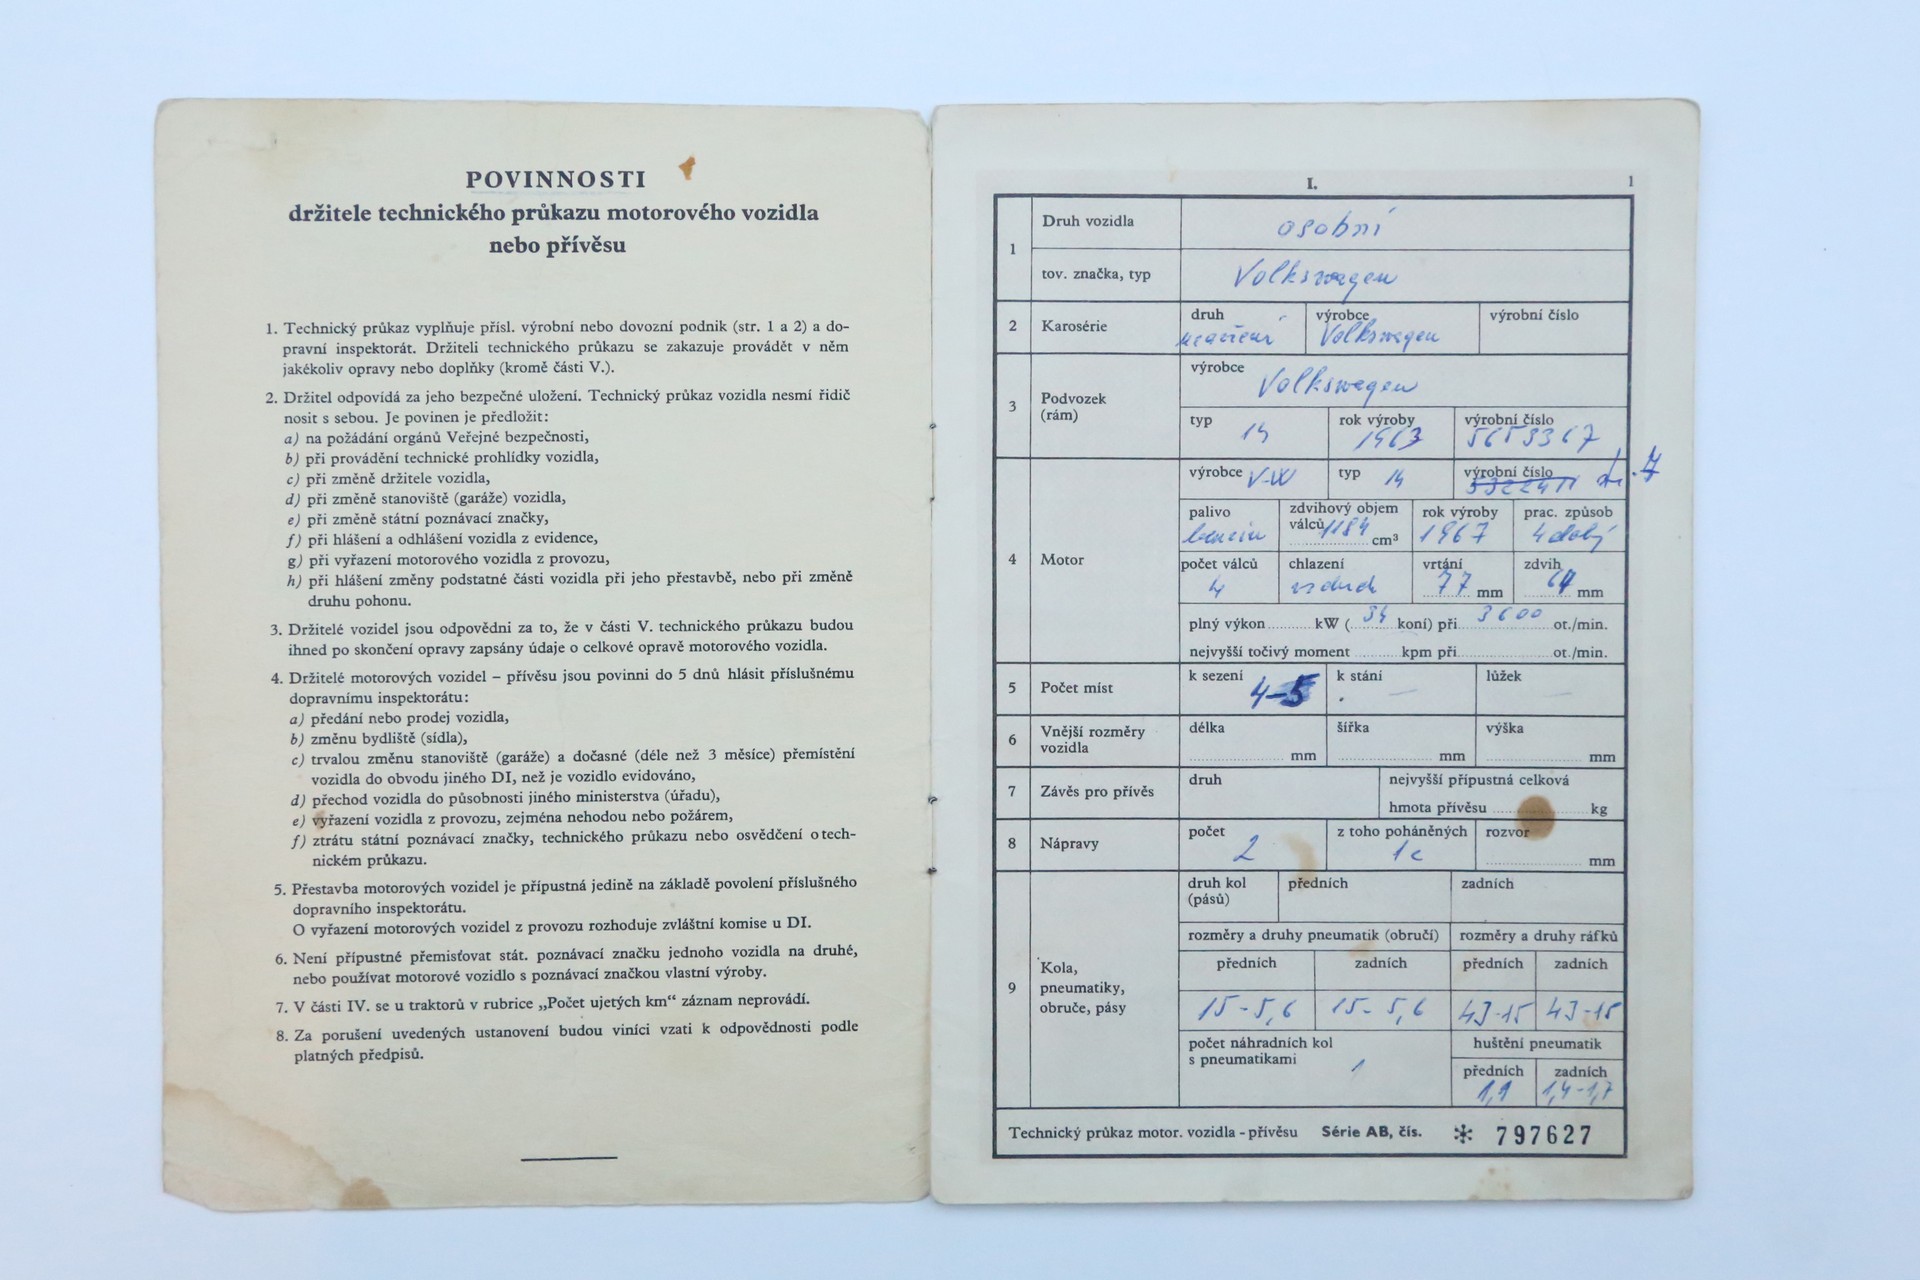 POVINNOSTI
držitele technického průkazu motorového vozidla
nebo přívěsu
1. Technický průkaz vyplňuje přísl. výrobní nebo dovozní podnik (str. 1 a 2) a do-
pravní inspektorát. Držiteli technického průkazu se zakazuje provádět v něm
jakékoliv opravy nebo doplňky (kromě části V.).
2. Držitel odpovídá za jeho bezpečné uložení. Technický průkaz vozidla nesmí řidič
nosit s sebou. Je povinen je předložit:
a) na požádání orgánů Veřejné bezpečnosti,
b) při provádění technické prohlídky vozidla,
c) při změně držitele vozidla,
d) při změně stanoviště (garáže) vozidla,
e) při změně státní poznávací značky,
f) při hlášení a odhlášení vozidla z evidence,
g) při vyřazení motorového vozidla z provozu,
h) při hlášení změny podstatné části vozidla při jeho přestavbě, nebo při změně
druhu pohonu.
3. Držitelé vozidel jsou odpovědni za to, že v části V. technického průkazu budou
ihned po skončení opravy zapsány údaje o celkové opravě motorového vozidla.
4. Držitelé motorových vozidel – přívěsu jsou povinni do 5 dnů hlásit příslušnému
dopravnímu inspektorátu:
a) předání nebo prodej vozidla,
b) změnu bydliště (sídla),
c) trvalou změnu stanoviště (garáže) a dočasné (déle než 3 měsíce) přemístění
vozidla do obvodu jiného DI, než je vozidlo evidováno,
d) přechod vozidla do působnosti jiného ministerstva (úřadu),
e) vyřazení vozidla z provozu, zejména nehodou nebo požárem,
f) ztrátu státní poznávací značky, technického průkazu nebo osvědčení o tech-
nickém průkazu.
5. Přestavba motorových vozidel je přípustná jedině na základě povolení příslušného
dopravního inspektorátu.
O vyřazení motorových vozidel z provozu rozhoduje zvláštní komise u DI.
6. Není přípustné přemisťovat stát. poznávací značku jednoho vozidla na druhé,
nebo používat motorové vozidlo s poznávací značkou vlastní výroby.
7. V části IV. se u traktorů v rubrice „Počet ujetých km“ záznam neprovádí.
8. Za porušení uvedených ustanovení budou viníci vzati k odpovědnosti podle
platných předpisů.
I. 1
1 Druh vozidla osobní
tov. značka, typ Volkswagen
2 Karosérie druh výrobce výrobní číslo
Volkswagen
3 Podvozek (rám) výrobce Volkswagen
typ rok výroby výrobní číslo
14 1963 5653367
4 Motor výrobce V-W typ 14 výrobní číslo
palivo zdvihový objem válců 1184 cm³ rok výroby prac. způsob
benzin 1967 4 dobý
počet válců chlazení vrtání zdvih
4 vzduch 77 mm 64 mm
plný výkon kW ( 34 koní) při 3600 ot./min.
nejvyšší točivý moment kpm při ot./min.
5 Počet míst k sezení 4-5 k stání — lůžek —
6 Vnější rozměry vozidla délka šířka výška
mm mm mm
7 Závěs pro přívěs druh nejvyšší přípustná celková
hmota přívěsu kg
8 Nápravy počet z toho poháněných rozvor
2 1 mm
9 Kola, pneumatiky, obruče, pásy druh kol (pásů) předních zadních
rozměry a druhy pneumatik (obručí) rozměry a druhy ráfků
předních zadních předních zadních
15-5,6 15-5,6 4J-15 4J-15
počet náhradních kol s pneumatikami 1 huštění pneumatik
předních zadních
1,1 1,4-1,7
Technický průkaz motor. vozidla - přívěsu Série AB, čís. ✻ 797627